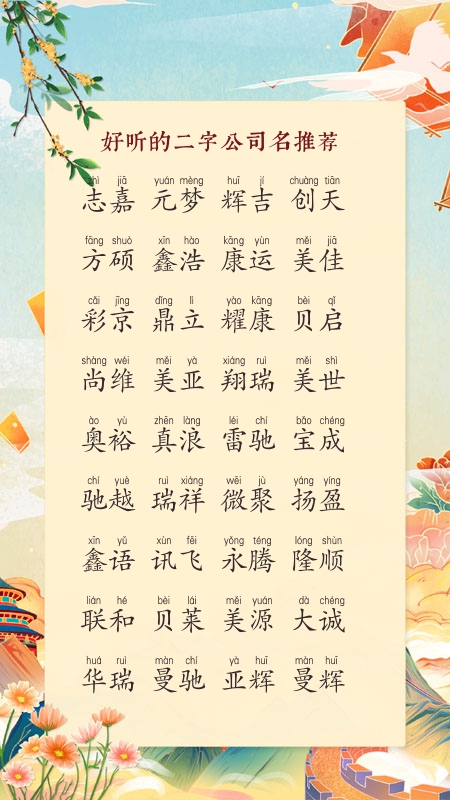 好听的二字公司名推荐
zhì jiā yuán mèng huī jí chuàng tiān
志嘉 元梦 辉吉 创天
fāng shuò xīn hào kāng yùn měi jiā
方硕 鑫浩 康运 美佳
cǎi jīng dǐng lì yào kāng bèi qǐ
彩京 鼎立 耀康 贝启
shàng wéi měi yà xiáng ruì měi shì
尚维 美亚 翔瑞 美世
ào yù zhēn làng léi chí bǎo chéng
奥裕 真浪 雷驰 宝成
chí yuè ruì xiáng wēi jù yáng yíng
驰越 瑞祥 微聚 扬盈
xīn yǔ xùn fēi yǒng téng lóng shùn
鑫语 讯飞 永腾 隆顺
lián hé bèi lái měi yuán dà chéng
联和 贝莱 美源 大诚
huá ruì màn chí yà huī màn huī
华瑞 曼驰 亚辉 曼辉